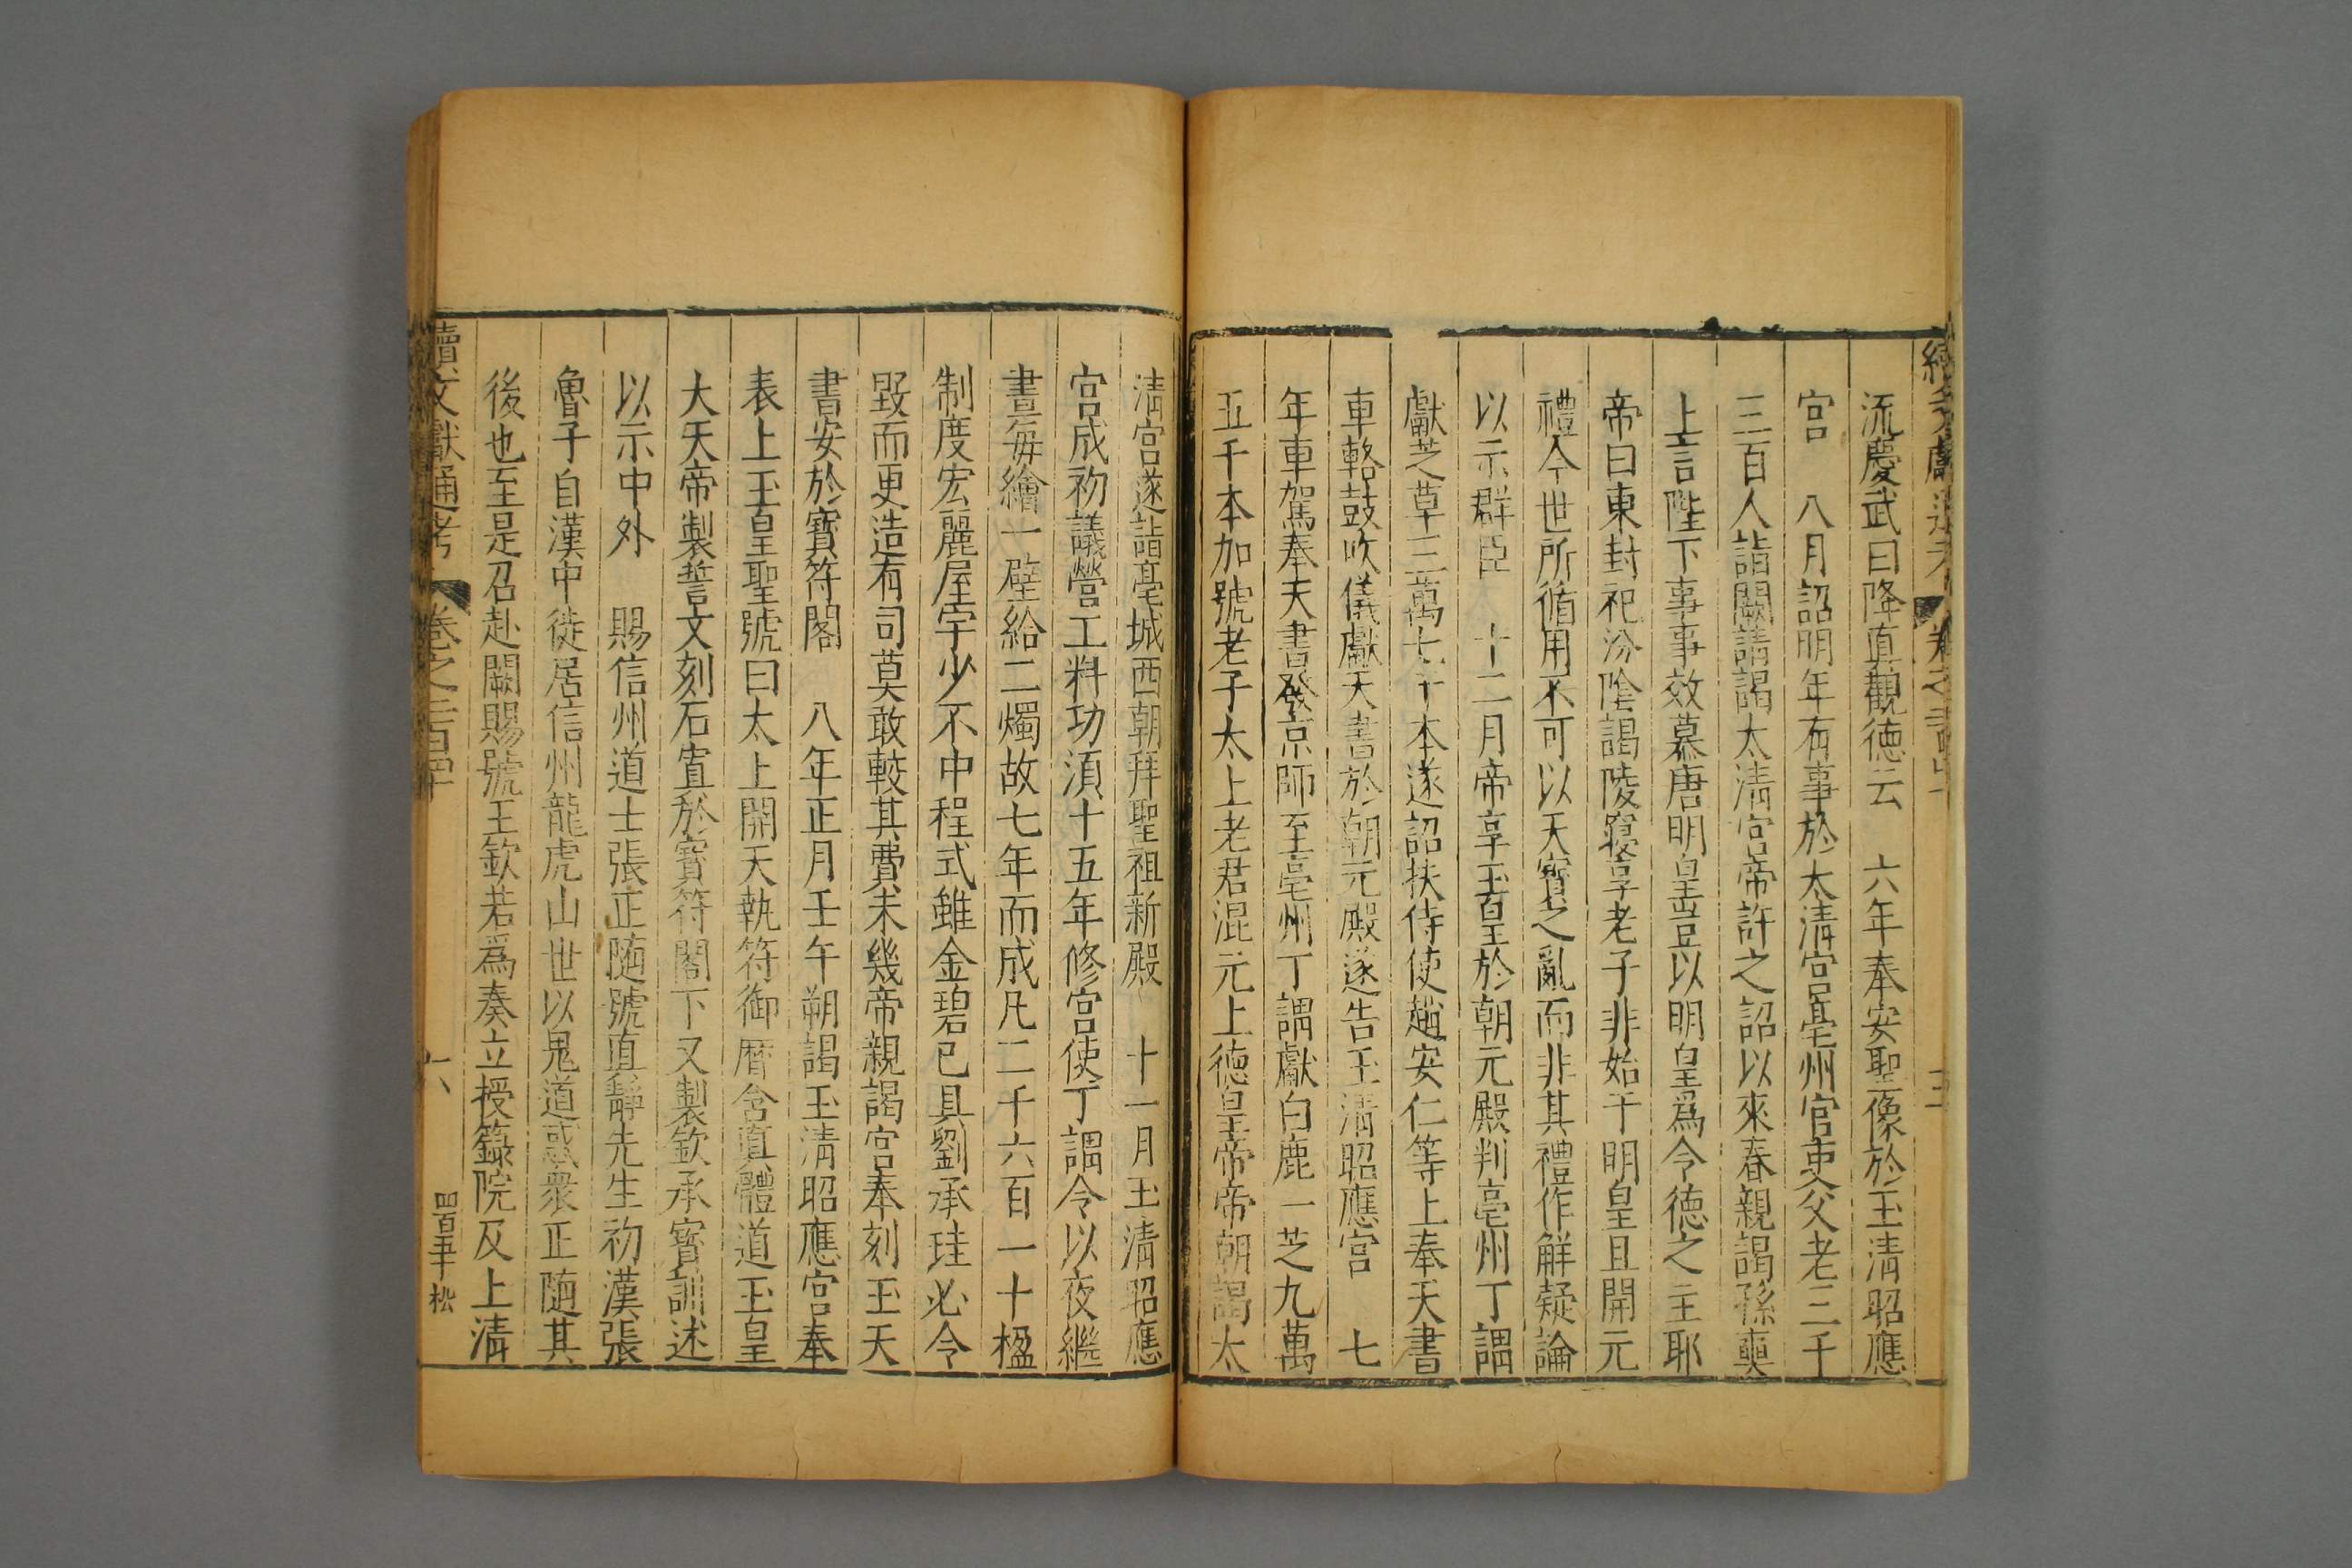 流慶武曰降真觀德云　六年奉安聖像於玉清昭應
宮　八月詔明年有事於太清宮亳州官吏父老三千
三百人詣闕請謁太清宮帝許之詔以來春親謁孫奭
上言陛下事事效慕唐明皇豈以明皇爲令德之主耶
帝曰東封祀汾陰謁陵寢享老子非始于明皇且開元
禮今世所循用不可以天寶之亂而非其禮作解疑論
以示群臣　十二月帝享玉皇於朝元殿判亳州丁謂
獻芝草三萬七千本遂詔扶侍使趙安仁等上奉天書
車輅鼓吹儀獻天書於朝元殿遂告玉清昭應宮　七
年車駕奉天書發京師至亳州丁謂獻白鹿一芝九萬
五千本加號老子太上老君混元上德皇帝帝朝謁太
清宮遂詣亳城西朝拜聖祖新殿　十一月玉清昭應
宮成初議營工料功須十五年修宮使丁謂令以夜繼
晝每繪一壁給二燭故七年而成凡二千六百一十楹
制度宏麗屋宇少不中程式雖金碧已具劉承珪必令
毀而更造有司莫敢較其費未幾帝親謁宮奉刻玉天
書安於寶符閣　八年正月壬午朔謁玉清昭應宮奉
表上玉皇聖號曰太上開天執符御曆含真體道玉皇
大天帝製誓文刻石寘於寶符閣下又製欽承寶訓述
以示中外　賜信州道士張正隨號真靜先生初漢張
魯子自漢中徙居信州龍虎山世以鬼道惑衆正隨其
後也至是召赴闕賜號王欽若爲奏立授籙院及上清
續文獻通考　卷之二百四十
六
四百五十　松